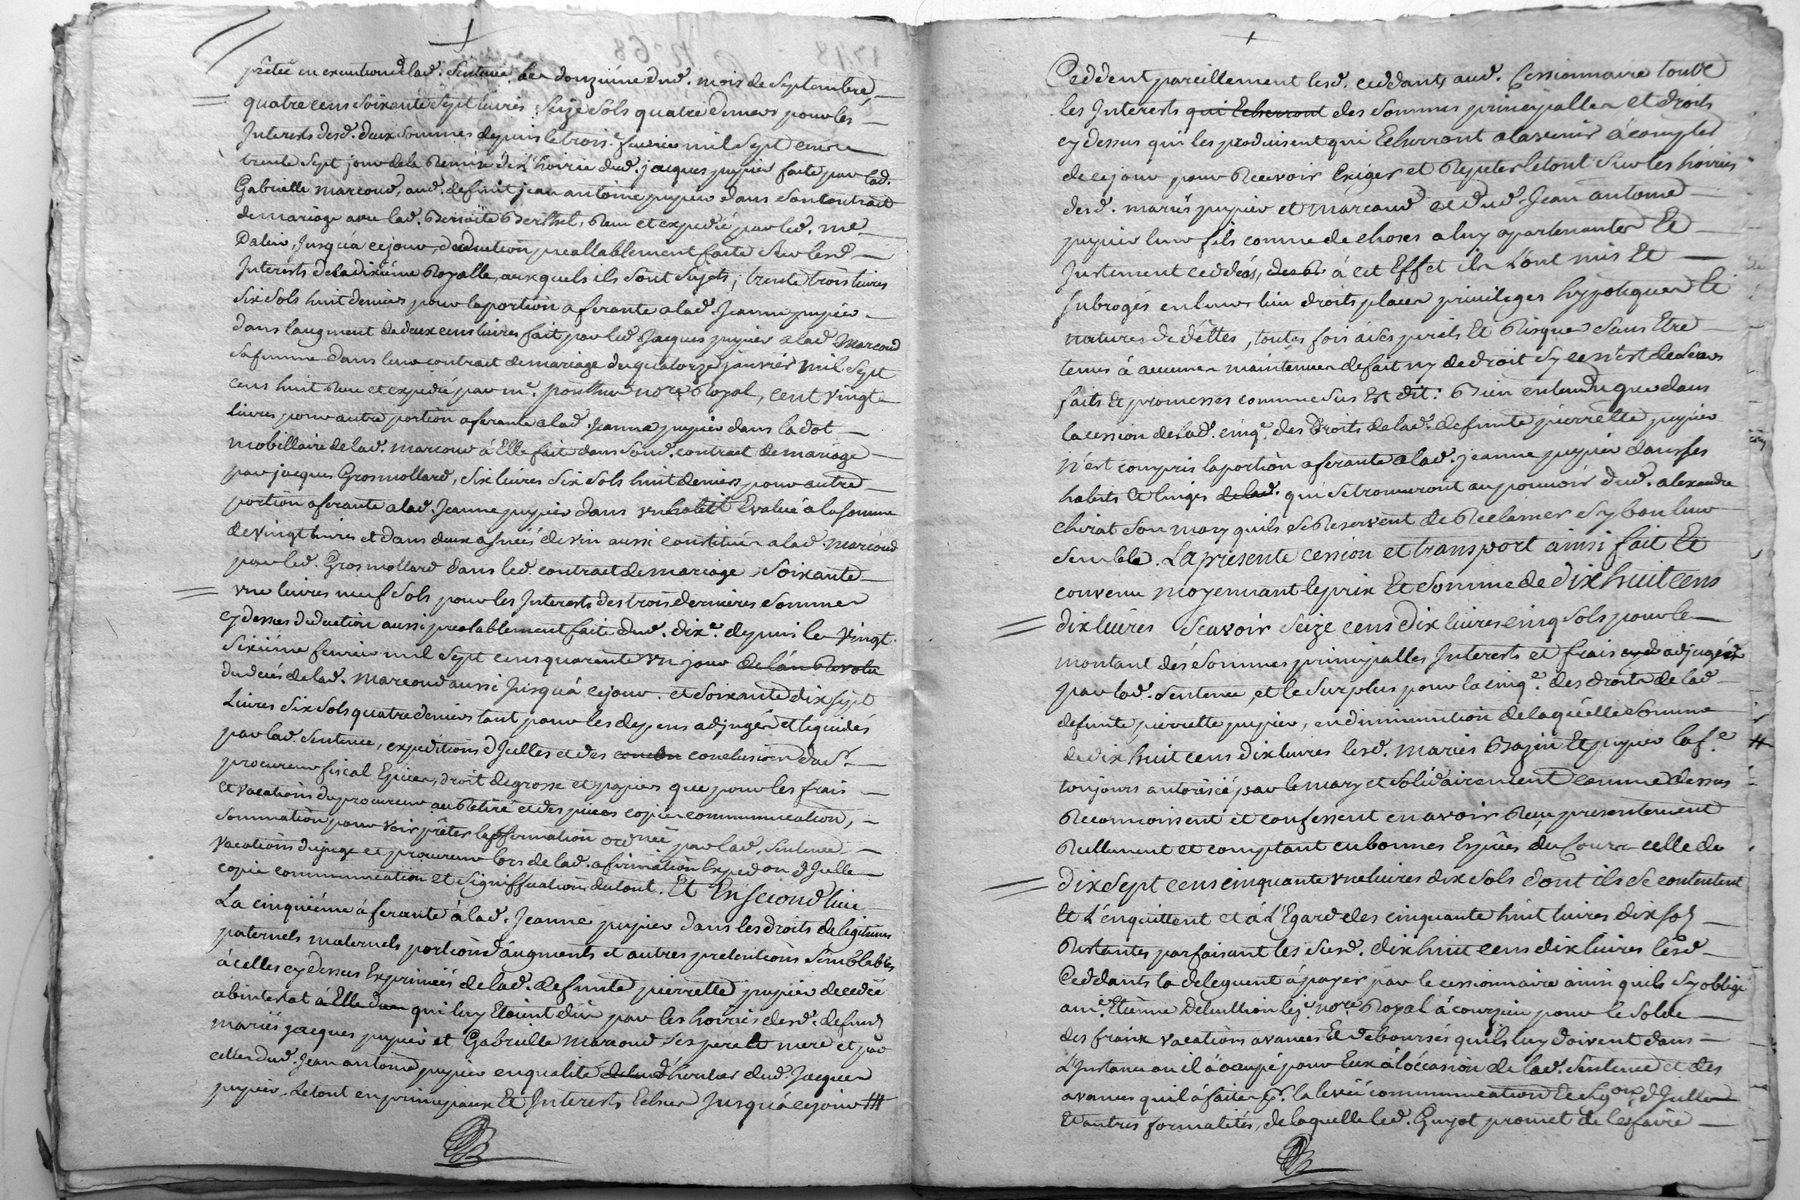 prêtée en execution de lad. Sentence le douziéme dud. mois de Septembre,
quatre cens soixante sept livres seize sols quatre deniers pour les
Interests desd. deux sommes depuis le trois.e fevrier mil sept cens
trente sept jour de la Remise de l'hoirie dud. jacques pupier faite par lad.
Gabrielle marcoud, aud. deffunt jean antoine pupier dans son contrait
de mariage avec lad. Benoite Berthet, Reçu et expedié par led. me
Dalin, Jusqu'à ce jour, deduction preallablement faite sur lesd.
Interests de la dixiéme Royalle, auxquels ils sont sujets; trente trois livres
six sols huit deniers pour la portion aferante a lad. Jeanne pupier
dans l'augment de deux cens livres fait par led. Jacques pupier a lad. Marcoud
sa femme dans leur contrait de mariage du quatorze janvier mil sept
cens huit Reçu et expedié par m.e not.re Royal, cent vingt
livres pour autre portion aferante a lad. Jeanne pupier dans la dot
mobillaire de lad. marcoud à Elle fait dans sond. contract de mariage
par jacques Grosmollard, six livres six sols huit deniers pour autre
portion aferante a lad. Jeanne pupier dans un habit Evalué à la somme
de vingt livres et dans deux asnées de vin aussi constituées a lad. Marcoud
par led. Grosmollard dans led. contract de mariage, soixante
une livres neuf sols pour les Interests des trois dernieres sommes
cy dessus deduction aussi prealablement faite dud. dix.e depuis le vingt
sixiéme fevrier mil sept cens quarante un jour de l'an Revolu
du decés de lad. marcoud aussi jusqu'à ce jour. et soixante dix sept
Livres six sols quatre deniers tant pour les depens adjugés et liquidés
par lad. sentence, expeditions d'Icelles et des conclusions dud. S.r
procureur fiscal Epices, droit de grosse et papier que pour les frais
et vacations du procureur au Retiré et des pieces copie communication,
sommation pour voir prêter l'affirmation ord.née par lad. sentence
vacations du juge et procureur lors de lad. afirmation Exped.on d'Icelle
copie communication et signiffications du tout. Et En second lieu
La cinquiéme àferante à lad. Jeanne pupier dans les droits de legitimes
paternels maternels portions d'augments et autres pretentions semblables
à celles cy dessus Exprimées de lad. defunte pierrette pupier decedée
abintestat à Elle qui luy Etoient dûs par les hoiries desd. defunts
mariés jacques pupier et Gabrielle Marcoud ses pere et mere et par
celles dud. Jean antoine pupier en qualité d'heritier dud. Jacques
pupier. Letout en principaux Et Interests Echus Jusqu'à ce jour
Ceddent pareillement lesd. ceddants aud. Cessionnaire tous
les Interests qui Echerront des sommes principalles et droits
cy dessus qui les produisent qui Echerront a l'avenir à compter
de ce jour pour Recevoir Exiger et Repeter le tout sur les hoiries
desd. mariés pupier et Marcoud et dud. Jean antoine
pupier leur fils comme de choses a luy apartenantes Et
Justement ceddées, à cet Effet ils l'ont mis Et
subrogés en leurs lieu droits places privileges hypoteques Et
natures de dettes, toutes fois à ses perils Et Risques sans Etre
tenus à aucune maintenue de fait ny de droit sy ce n'est de leurs
faits Et promesses comme sus Est dit: Bien entendu que dans
la cession de lad. cinq.e des Droits de lad. defunte pierrette pupier
N'est compris la portion aferante a lad. jeanne pupier dans ses
habits Et linges de lad. qui se trouveront au pouvoir dud. alexandre
chirat son mary qu'ils se Reservent de Reclamer sy bon leur
semble. La presente cession et transport ainsi fait Et
convenu moyennant le prix Et somme de dix huit cens
dix livres Scavoir seize cens dix livres cinq sols pour le
montant dés sommes principalles Interests et frais adjugés
par lad. sentence, et le surplus pour la cinq.e des droits de lad.
defunte pierrette pupier, en diminution de laquelle somme
de dix huit cens dix livres lesd. mariés Bazin Et pupier la f.e
toujours autorisée par le mary et solidairement comme dessus
Reconnoissent et confessent en avoir Reçu presentement
Reellement et comptant en bonnes Espèces du Cours celle de
dix sept cens cinquante une livres dix sols dont ils se contentent
Et l'enquittent et à l'Egard des cinquante huit livres dix sols
Restantes parfaisant les susd. dix huit cens dix livres lesd.
Ceddants la deleguent à payer par le cessionnaire ainsi qu'il s'y oblige
a m.e Etienne not.re Royal à pour le solde
des fraix vacations avances Et debourcés qu'ils luy doivent dans
l'Instance ou il à occupé pour Eux à l'occasion de lad. sentence et des
avances qu'il à faites p.r la levée communication d'Icelle
Et autres formalités, de laquelle led. Guyot promet de les faire